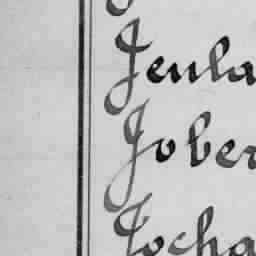 Jenla
Jober
Jocha